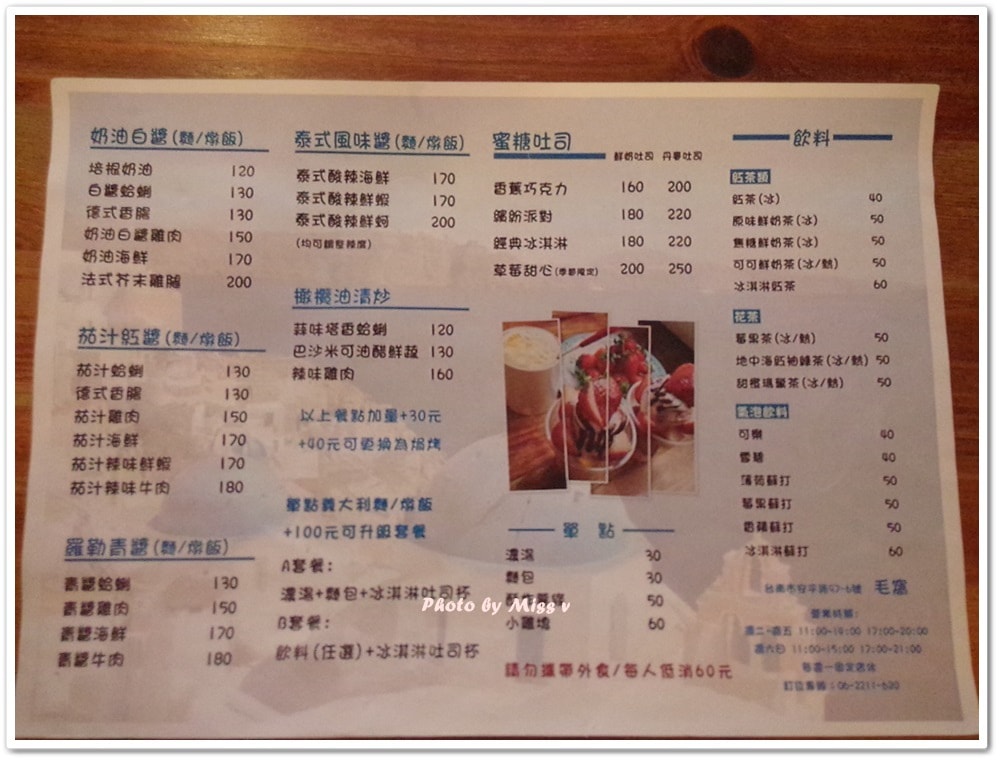 奶油白醬(麵/燉飯)
培根奶油 120
白醬蛤蜊 130
德式香腸 130
奶油白醬雞肉 150
奶油海鮮 170
法式芥末雞腿 200
茄汁紅醬(麵/燉飯)
茄汁蛤蜊 130
德式香腸 130
茄汁雞肉 150
茄汁海鮮 170
茄汁辣味鮮蝦 170
茄汁辣味牛肉 180
羅勒青醬(麵/燉飯)
青醬蛤蜊 130
青醬雞肉 150
青醬海鮮 170
青醬牛肉 180
泰式風味醬(麵/燉飯)
泰式酸辣海鮮 170
泰式酸辣鮮蝦 170
泰式酸辣鮮蚵 200
(均可調整辣度)
橄欖油清炒
蒜味塔香蛤蜊 120
巴沙米可油醋鮮蔬 130
辣味雞肉 160
以上餐點加量+30元
+40元可更換為焗烤
單點義大利麵/燉飯
+100元可升級套餐
A套餐:
濃湯+麵包+冰淇淋吐司杯
B套餐:
飲料(任選)+冰淇淋吐司杯
蜜糖吐司
鮮奶吐司 丹麥吐司
香蕉巧克力 160 200
繽紛派對 180 220
經典冰淇淋 180 220
草莓甜心(季節限定) 200 250
單點
濃湯 30
麵包 30
50
小雞塊 60
請勿攜帶外食/每人低消60元
飲料
紅茶類
紅茶(冰) 40
原味鮮奶茶(冰) 50
焦糖鮮奶茶(冰) 50
可可鮮奶茶(冰/熱) 50
冰淇淋紅茶 60
花茶
莓果茶(冰/熱) 50
地中海紅柚綠茶(冰/熱) 50
甜蜜瑪黛茶(冰/熱) 50
氣泡飲料
可樂 40
雪碧 40
薄荷蘇打 50
莓果蘇打 50
香蘋蘇打 50
冰淇淋蘇打 60
台南市安平路97-6號 毛窩
營業時間:
週二-週五 11:00-14:00 17:00-20:00
週六日 11:00-15:00 17:00-21:00
每週一固定店休
訂位專線:06-2211-620
Photo by Miss v